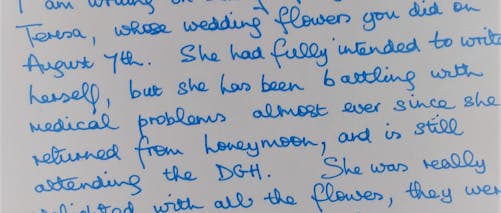 I am writing on
Teresa, whose wedding flowers you did on
August 7th. She had fully intended to write
herself, but she has been battling with
medical problems almost ever since she
returned from honeymoon, and is still
attending the DGH. She was really
delighted with all the flowers, they were